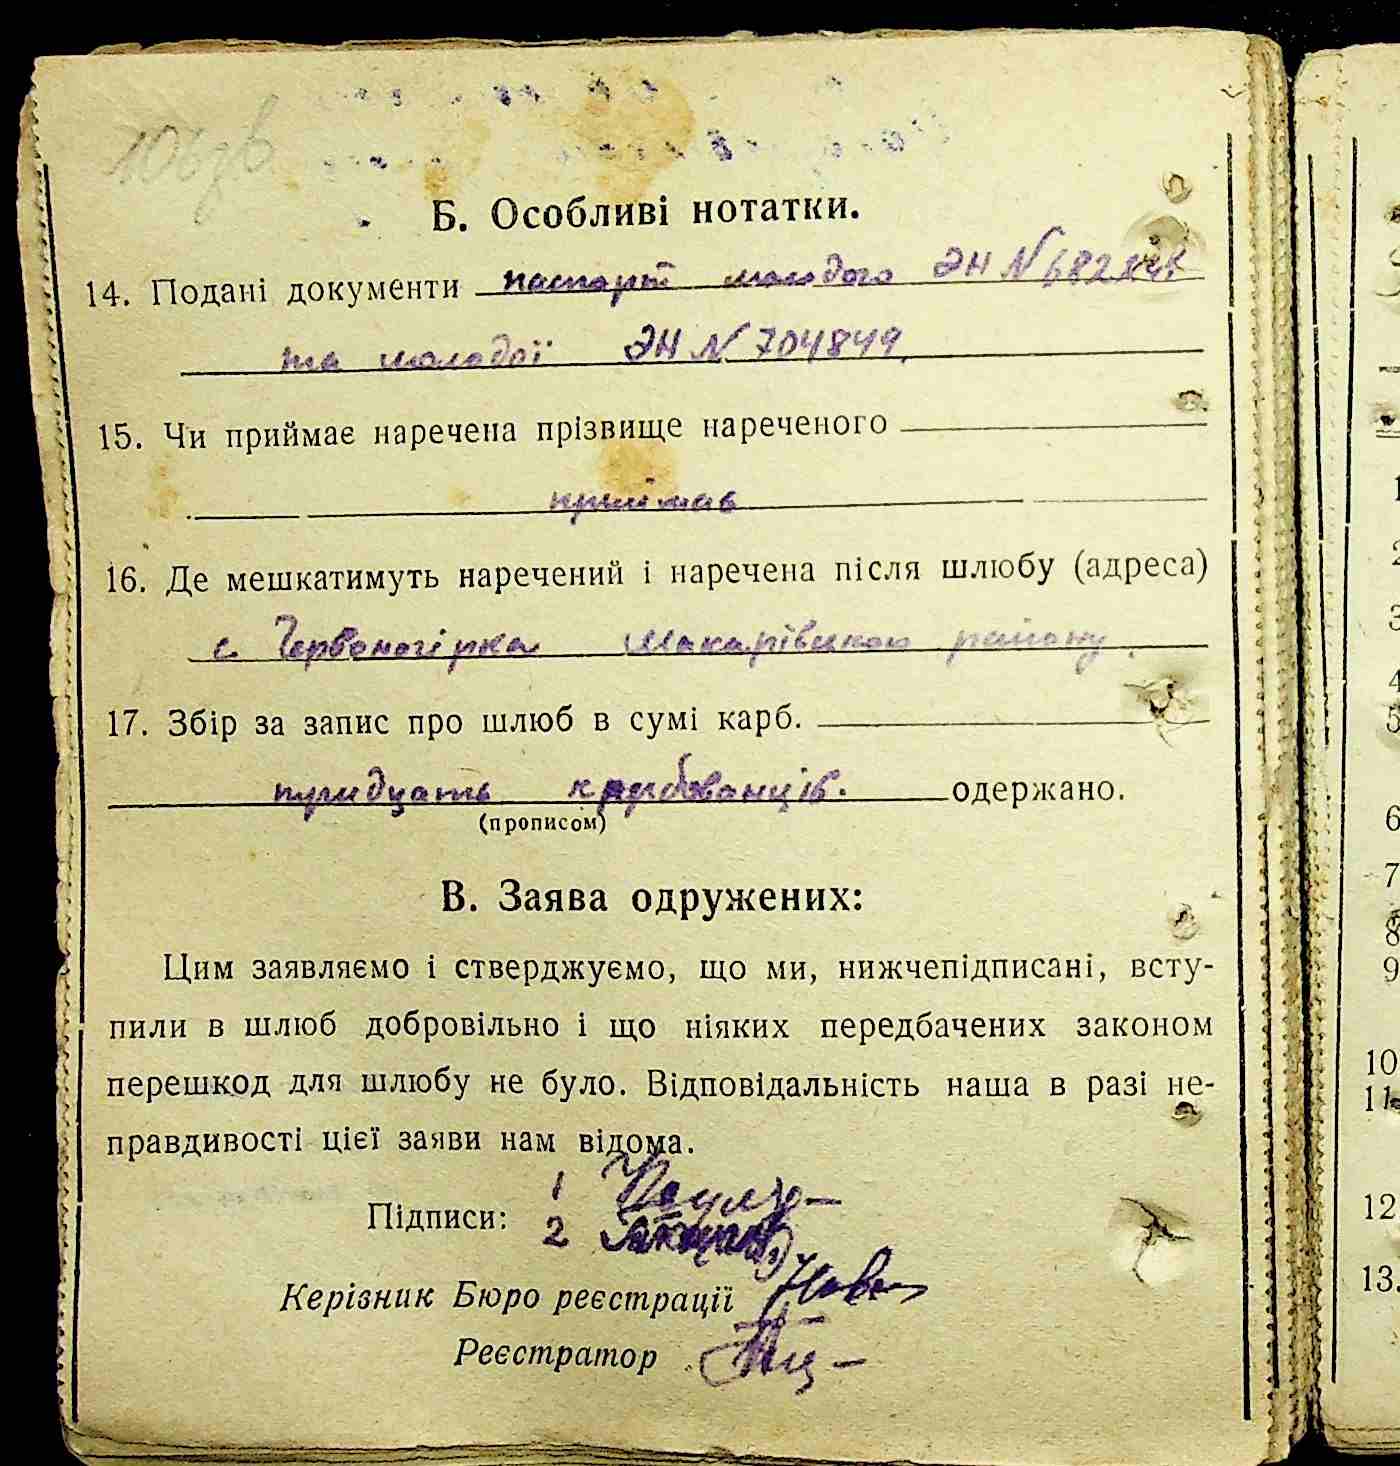 10 зв
Б. Особливі нотатки.
14. Подані документи паспорт молодого ЭН №
та молодої ЭН № 704849.
15. Чи приймає наречена прізвище нареченого
приймає
16. Де мешкатимуть наречений і наречена після шлюбу (адреса)
с. Червоногірка Макарівського району.
17. Збір за запис про шлюб в сумі карб.
тридцать карбованців. одержано.
(прописом)
В. Заява одружених:
Цим заявляємо і стверджуємо, що ми, нижчепідписані, всту-
пили в шлюб добровільно і що ніяких передбачених законом
перешкод для шлюбу не було. Відповідальність наша в разі не-
правдивості цієї заяви нам відома.
Підписи: 1
2
Керівник Бюро реєстрації
Реєстратор
1
2
3
4
5
6
7
8
9
10
11
12
13.